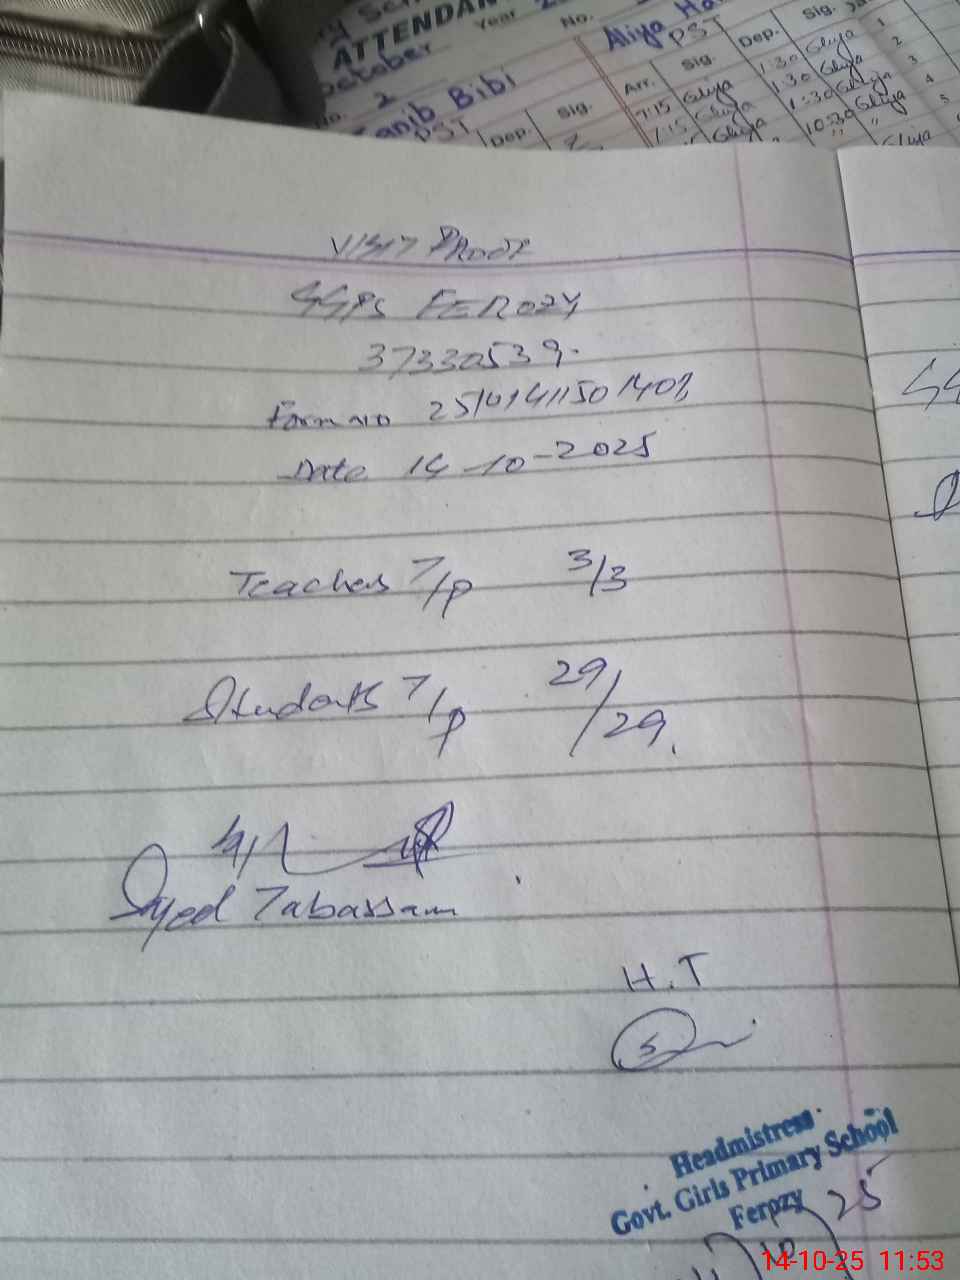 ATTENDAN
Year
No.
October
2
Zanib Bibi
PST
Dep.
Sig.
Aliya Ha
PST
Arr.
Sig.
Dep.
Sig.
7:15 Aliya 1:30 Aliya 1
7:15 Aliya 1:30 Aliya 2
Aliya 1:30 Aliya 3
10:30 " 4
Aliya 5
VISIT PROOF
GGPS FEROZY
37330539.
Form no 25101411501408
Date 14-10-2025
Teachers T/P 3/3
Students T/P 29/29.
Syed Tabassam
H.T
Headmistress
Govt. Girls Primary School
Ferozy
10 25
14-10-25 11:53